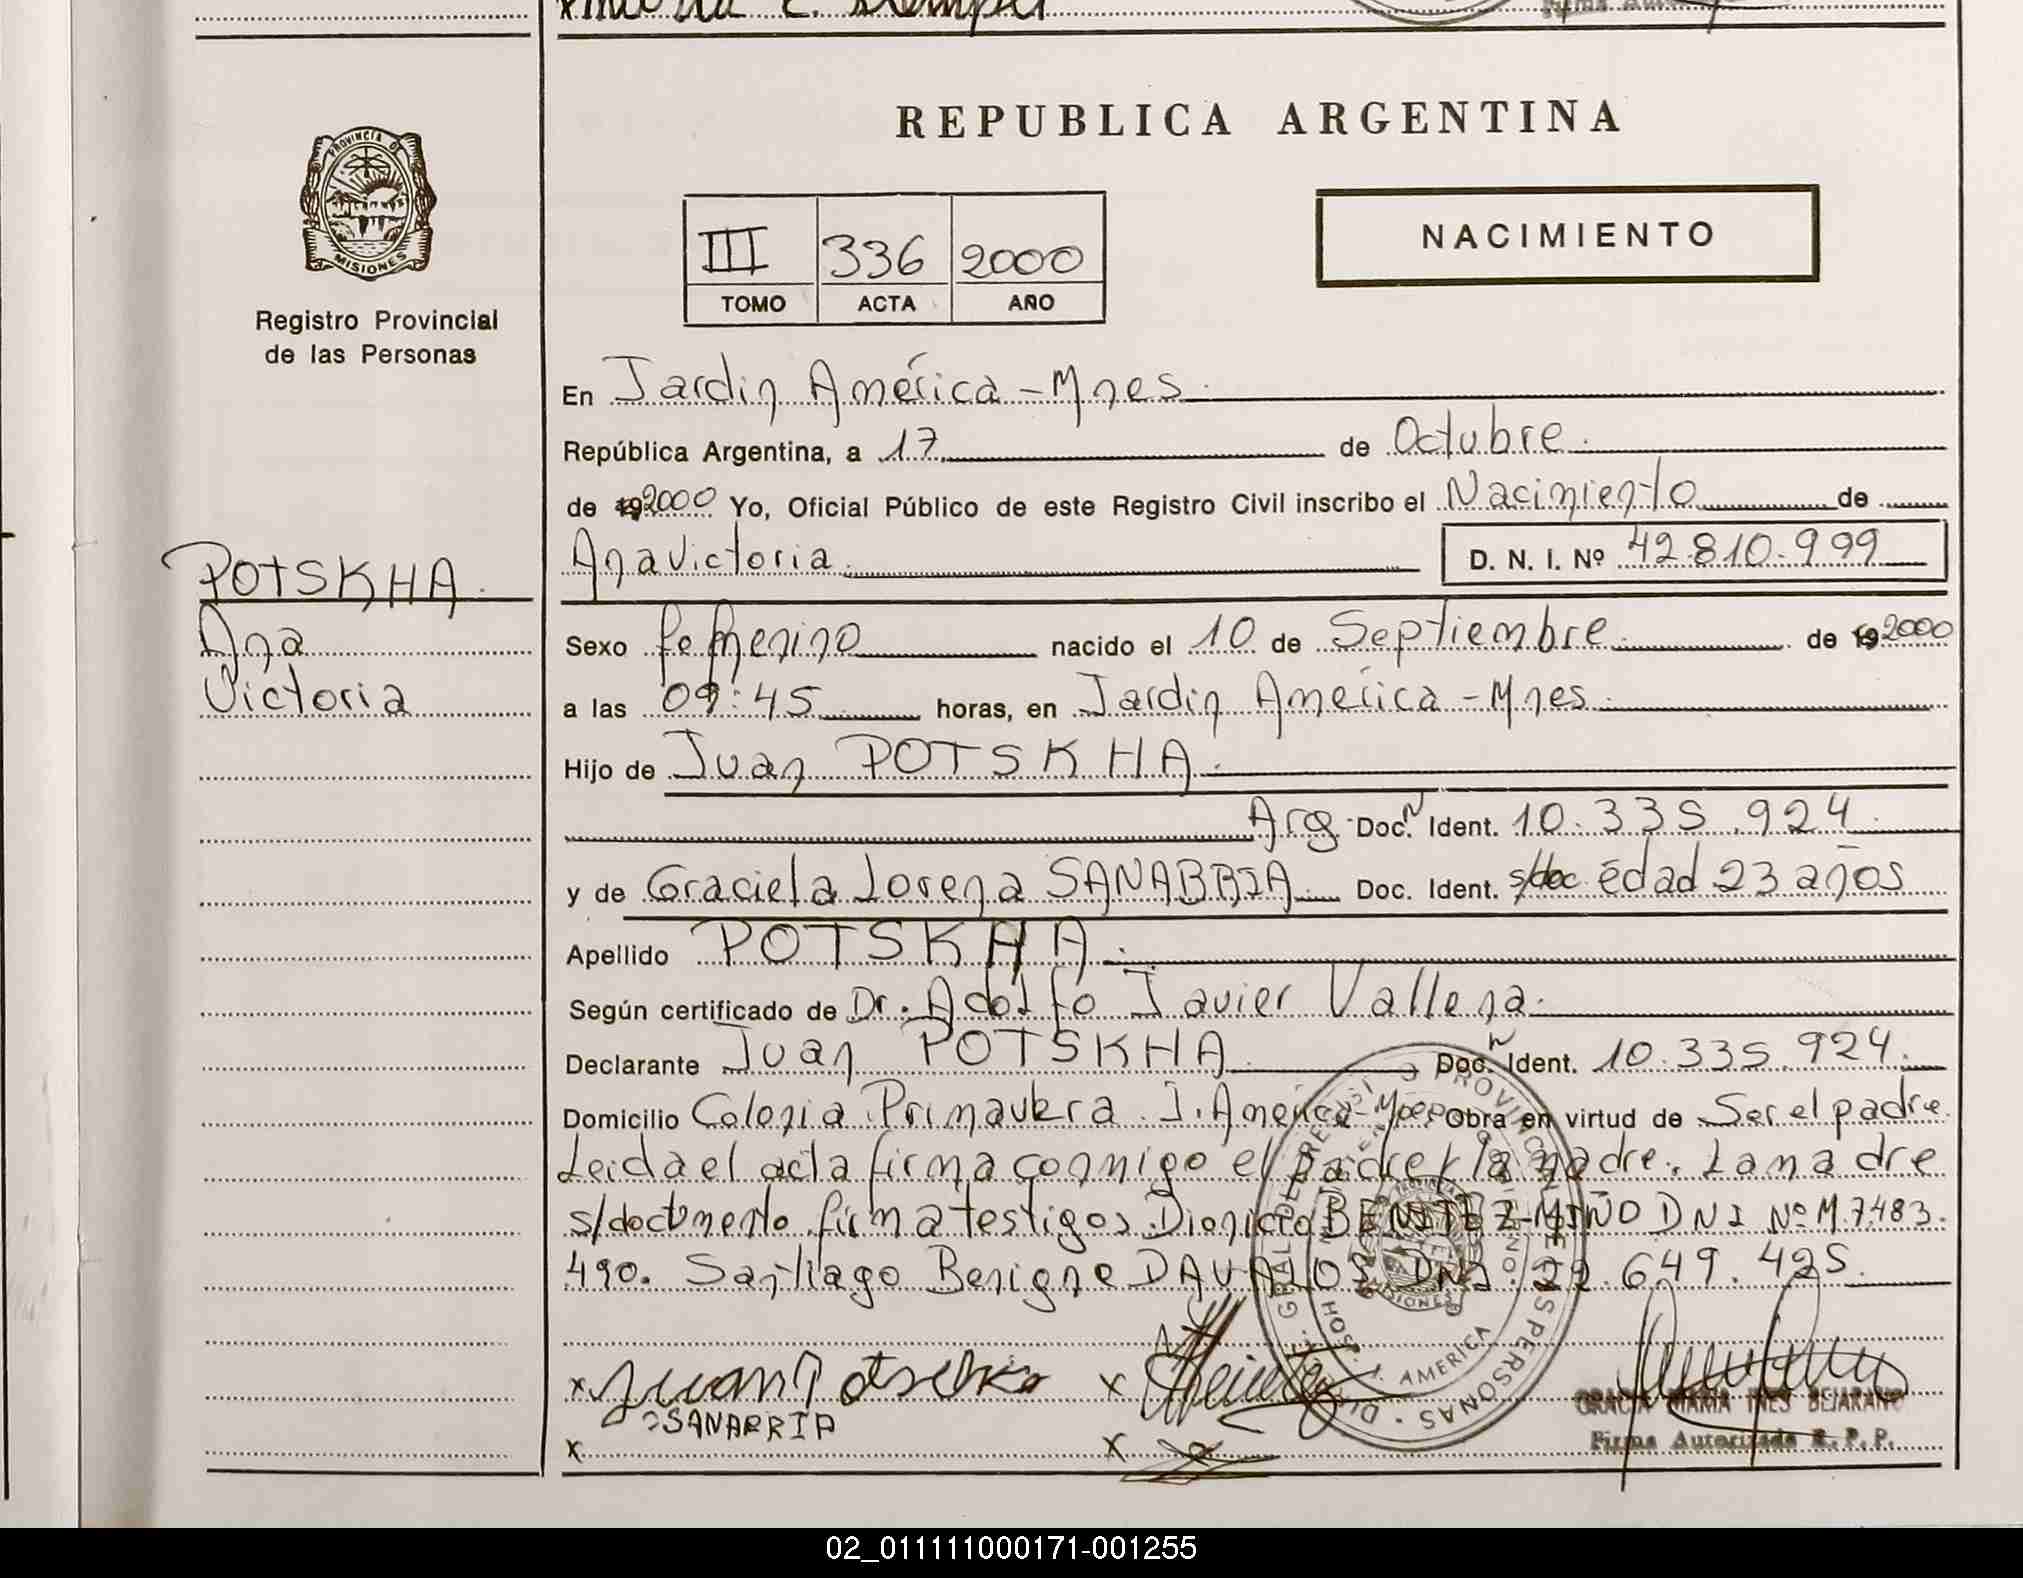 PROVINCIA DE
MISIONES
Registro Provincial
de las Personas
POTSKHA.
Ana
Victoria
REPUBLICA ARGENTINA
NACIMIENTO
III 336 2000
TOMO ACTA AÑO
En Jardin América - Mnes.
República Argentina, a 17 de Octubre.
de 192000 Yo, Oficial Público de este Registro Civil inscribo el Nacimiento de
Ana Victoria. D. N. I. Nº 42.810.999
Sexo femenino nacido el 10 de Septiembre. de 192000
a las 09:45 horas, en Jardin América - Mnes.
Hijo de Juan POTSKHA.
Arg. Doc.N Ident. 10.335.924.
y de Graciela Lorena SANABRIA. Doc. Ident. s/doc edad 23 años
Apellido POTSKHA.
Según certificado de Dr. Adolfo Javier Vallena.
Declarante Juan POTSKHA. Doc.N Ident. 10.335.924.
Domicilio Colonia Primavera. J. América - Mnes Obra en virtud de Ser el padre.
Leida el acta firma conmigo el padre y la madre. La madre
s/documento firma testigos Dionicio BENITEZ-MIÑO DNI Nº M.7.483.
490. Santiago Benigno DAVALOS DNI. 22.649.425.
x Juan Potschka x
SANABRIA
x x
GRACIA MARIA INES BEJARANO
Firma Autorizada R. P. P.
02_011111000171-001255